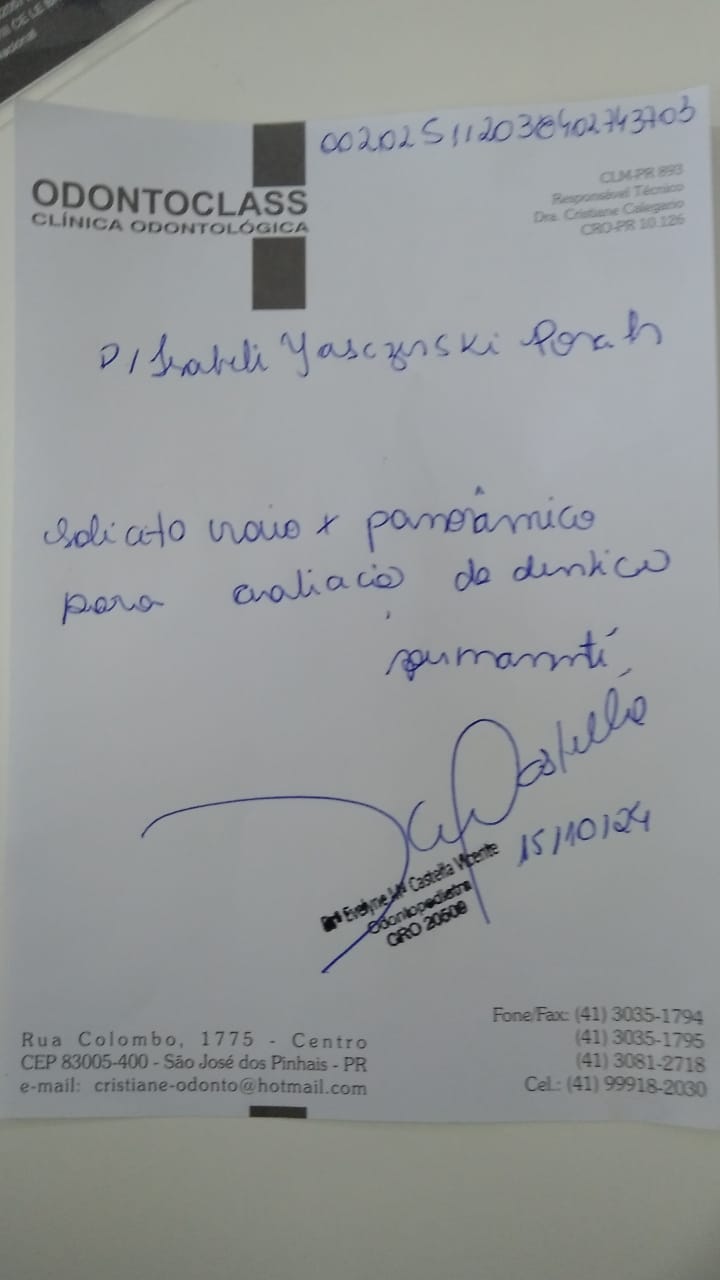 002025112038402743703
ODONTOCLASS
CLÍNICA ODONTOLÓGICA
CLM-PR 893
Responsável Técnico
Dra. Cristiane Calegario
CRO-PR 10.126
P/ Isabeli Yasczerski
Solicito raio x panorâmico
para avaliação da dentição
15/10/24
Drª Evelyne Mª Castella Vicente
Odontopediatra
CRO 20609
Rua Colombo, 1775 - Centro
CEP 83005-400 - São José dos Pinhais - PR
e-mail: cristiane-odonto@hotmail.com
Fone/Fax: (41) 3035-1794
(41) 3035-1795
(41) 3081-2718
Cel.: (41) 99918-2030